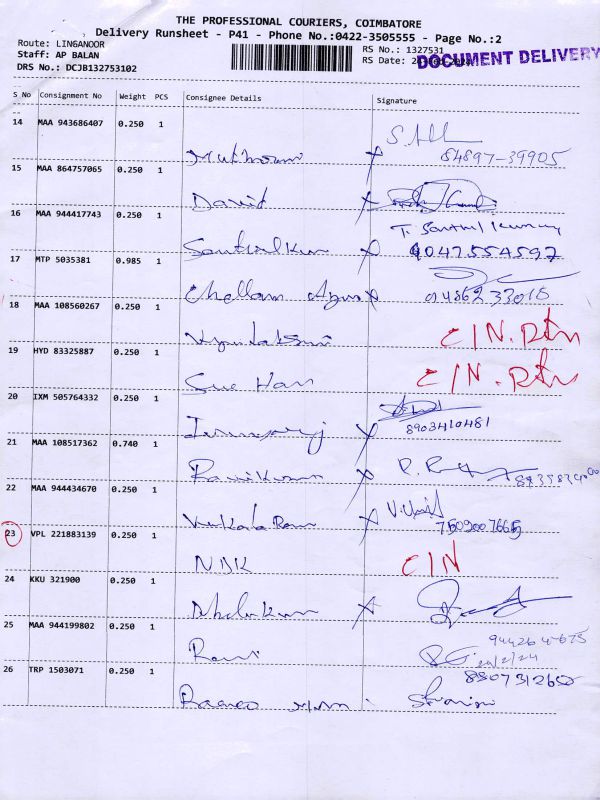 THE PROFESSIONAL COURIERS, COIMBATORE
Delivery Runsheet - P41 - Phone No.:0422-3505555 - Page No.:2
Route: LINGANOOR
RS No.: 1327531
Staff: AP BALAN
RS Date:
DOCUMENT DELIVERY
DRS No.: DCJB132753102
S No Consignment No Weight PCS Consignee Details Signature
14 MAA 943686407 0.250 1
84897-39905
15 MAA 864757065 0.250 1 David
16 MAA 944417743 0.250 1 T. Santhil Kumar
17 MTP 5035381 0.985 1 Chellam
18 MAA 108560267 0.250 1 C/N. Rtn
19 HYD 83325887 0.250 1 Sue Han C/N. Rtn
20 IXM 505764332 0.250 1
8903410481
21 MAA 108517362 0.740 1 Ravikumar
22 MAA 944434670 0.250 1 Venkata Ram
7509007665
23 VPL 221883139 0.250 1 NDK C/N
24 KKU 321900 0.250 1
25 MAA 944199802 0.250 1 Ravi
26 TRP 1503071 0.250 1
8907312650